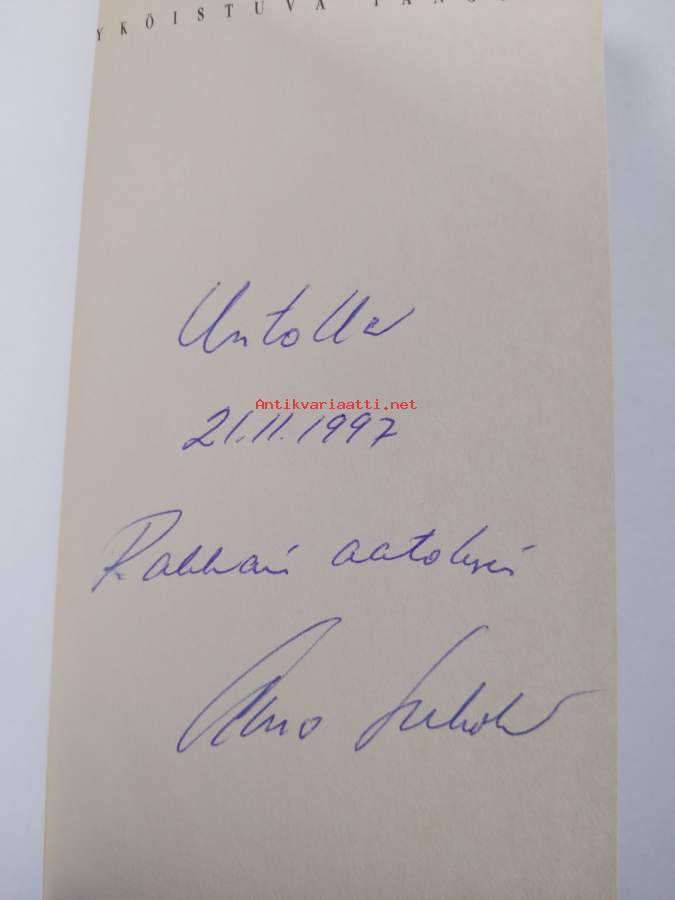 YKÖISTUVA TANGO
Untolla
Antikvariaatti.net
21.11.1997
Rakkain aatoksin